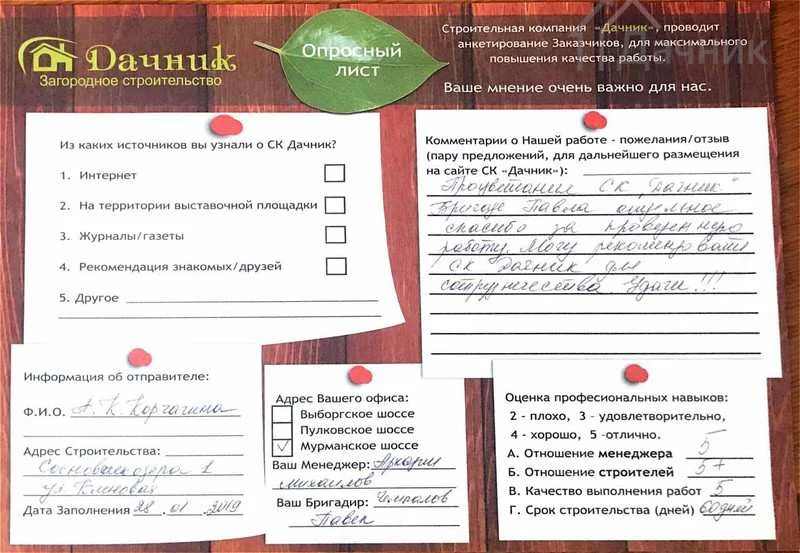 Дачник
Загородное строительство
Опросный
лист
Строительная компания «Дачник», проводит
анкетирование Заказчиков, для максимального
повышения качества работы.
Ваше мнение очень важно для нас.
дачник
Из каких источников вы узнали о СК Дачник?
1. Интернет
2. На территории выставочной площадки
3. Журналы/газеты
4. Рекомендация знакомых/друзей
5. Другое
Комментарии о Нашей работе - пожелания/отзыв
(пару предложений, для дальнейшего размещения
на сайте СК «Дачник»):
Процветания СК "Дачник"
Бригаде Павла отдельное
спасибо за
работу. Могу рекомендовать
СК Дачник для
сотрудничества Удачи!!!
Информация об отправителе:
Ф.И.О. А. К. Корчагина
Адрес Строительства:
1
ул. Кленовая
Дата Заполнения 28 .01 .2019
Адрес Вашего офиса:
Выборгское шоссе
Пулковское шоссе
Мурманское шоссе
Ваш Менеджер: Аркадий
Михайлов
Ваш Бригадир:
Павел
Оценка профессиональных навыков:
2 - плохо, 3 - удовлетворительно,
4 - хорошо, 5 -отлично.
А. Отношение менеджера 5
Б. Отношение строителей 5+
В. Качество выполнения работ 5
Г. Срок строительства (дней) 60 дней